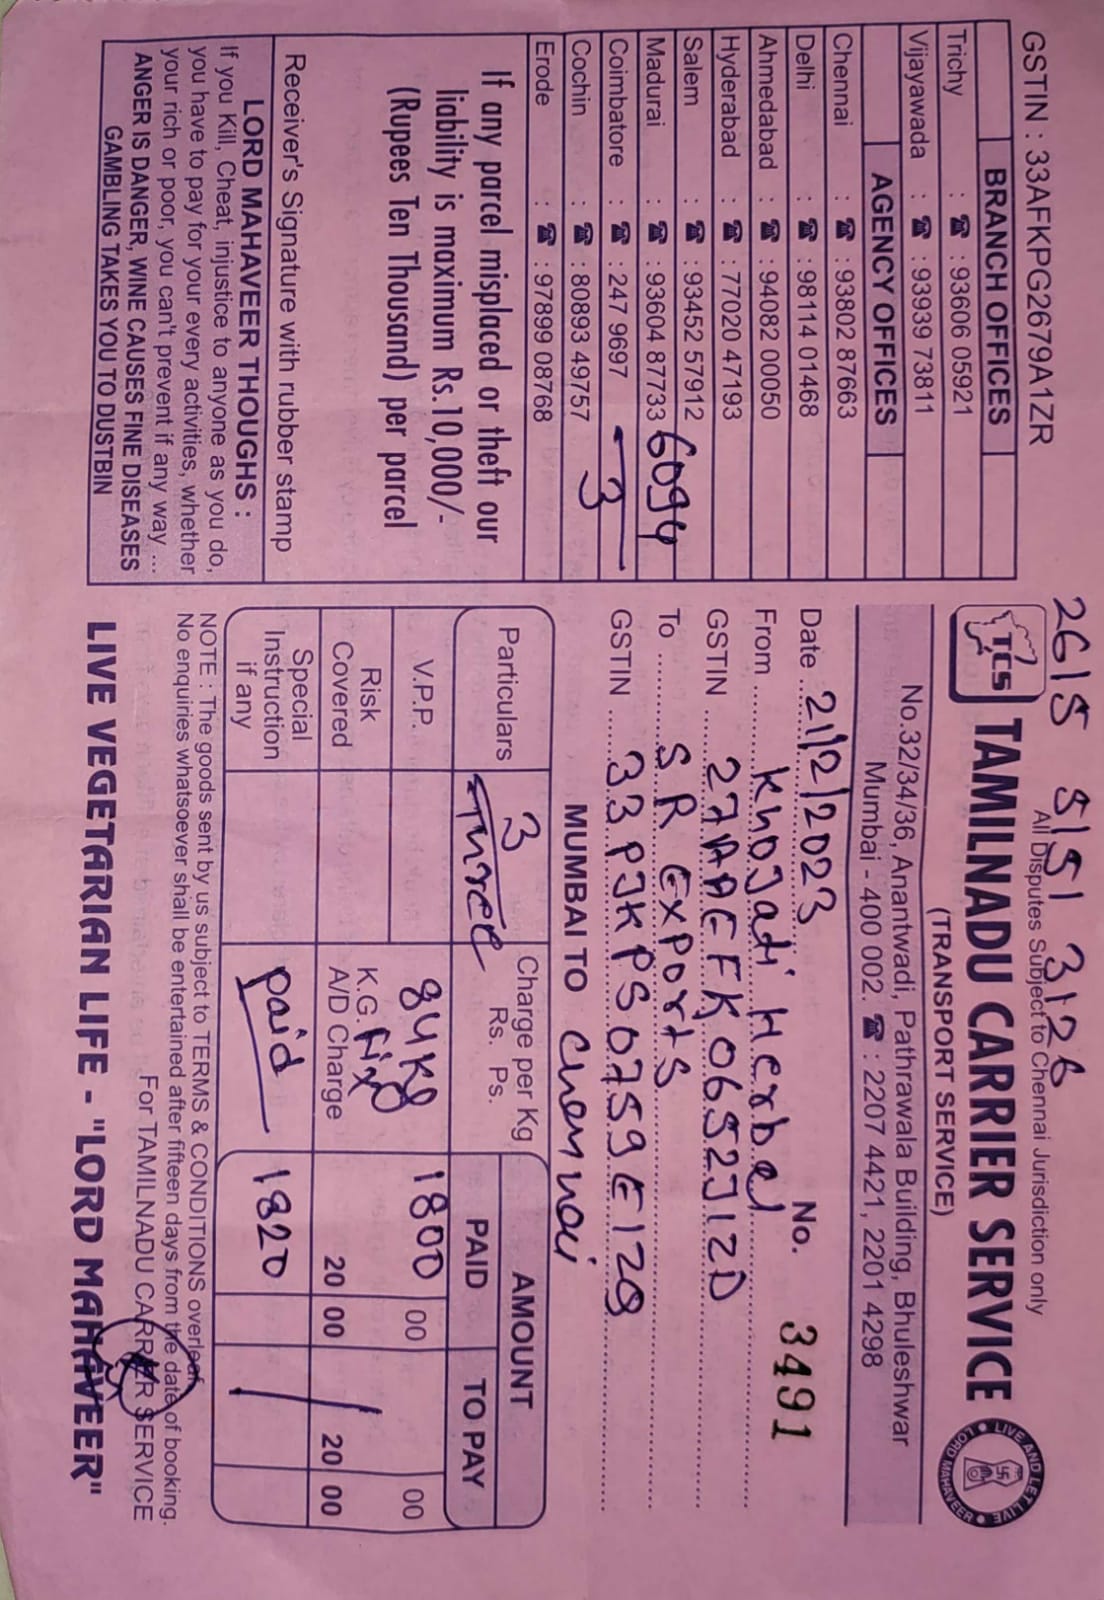 GSTIN : 33AFKPG2679A1ZR
BRANCH OFFICES
Trichy : ☎ : 93606 05921
Vijayawada : ☎ : 93939 73811
AGENCY OFFICES
Chennai : ☎ : 93802 87663
Delhi : ☎ : 98114 01468
Ahmedabad : ☎ : 94082 00050
Hyderabad : ☎ : 77020 47193
Salem : ☎ : 93452 57912
Madurai : ☎ : 93604 87733
Coimbatore : ☎ : 247 9697
Cochin : ☎ : 80893 49757
Erode : ☎ : 97899 08768
6094
3
If any parcel misplaced or theft our
liability is maximum Rs.10,000/-
(Rupees Ten Thousand) per parcel
Receiver's Signature with rubber stamp
LORD MAHAVEER THOUGHS :
If you Kill, Cheat, injustice to anyone as you do,
you have to pay for your every activities, whether
your rich or poor, you can't prevent if any way ...
ANGER IS DANGER, WINE CAUSES FINE DISEASES
GAMBLING TAKES YOU TO DUSTBIN
2615 5151 3126
All Disputes Subject to Chennai Jurisdiction only
TCS TAMILNADU CARRIER SERVICE
LIVE AND LET LIVE
LORD MAHAVEER
(TRANSPORT SERVICE)
No.32/34/36, Anantwadi, Pathrawala Building, Bhuleshwar
Mumbai - 400 002. ☎ : 2207 4421, 2201 4298
Date 21/2/2023 No. 3491
From Khojati Herbal
GSTIN 27AAEFK0652J1ZD
To S R Exports
GSTIN 33PJKPS0759E1Z9
MUMBAI TO Chennai
Particulars 3 Three Charge per Kg Rs. Ps. AMOUNT
PAID TO PAY
V.P.P. 84 Kg 1800 00 00
K.G. Fix
Risk Covered A/D Charge 20 00 20 00
Special Instruction if any paid 1820
NOTE : The goods sent by us subject to TERMS & CONDITIONS overleaf
No enquiries whatsoever shall be entertained after fifteen days from the date of booking.
For TAMILNADU CARRIER SERVICE
LIVE VEGETARIAN LIFE - "LORD MAHAVEER"